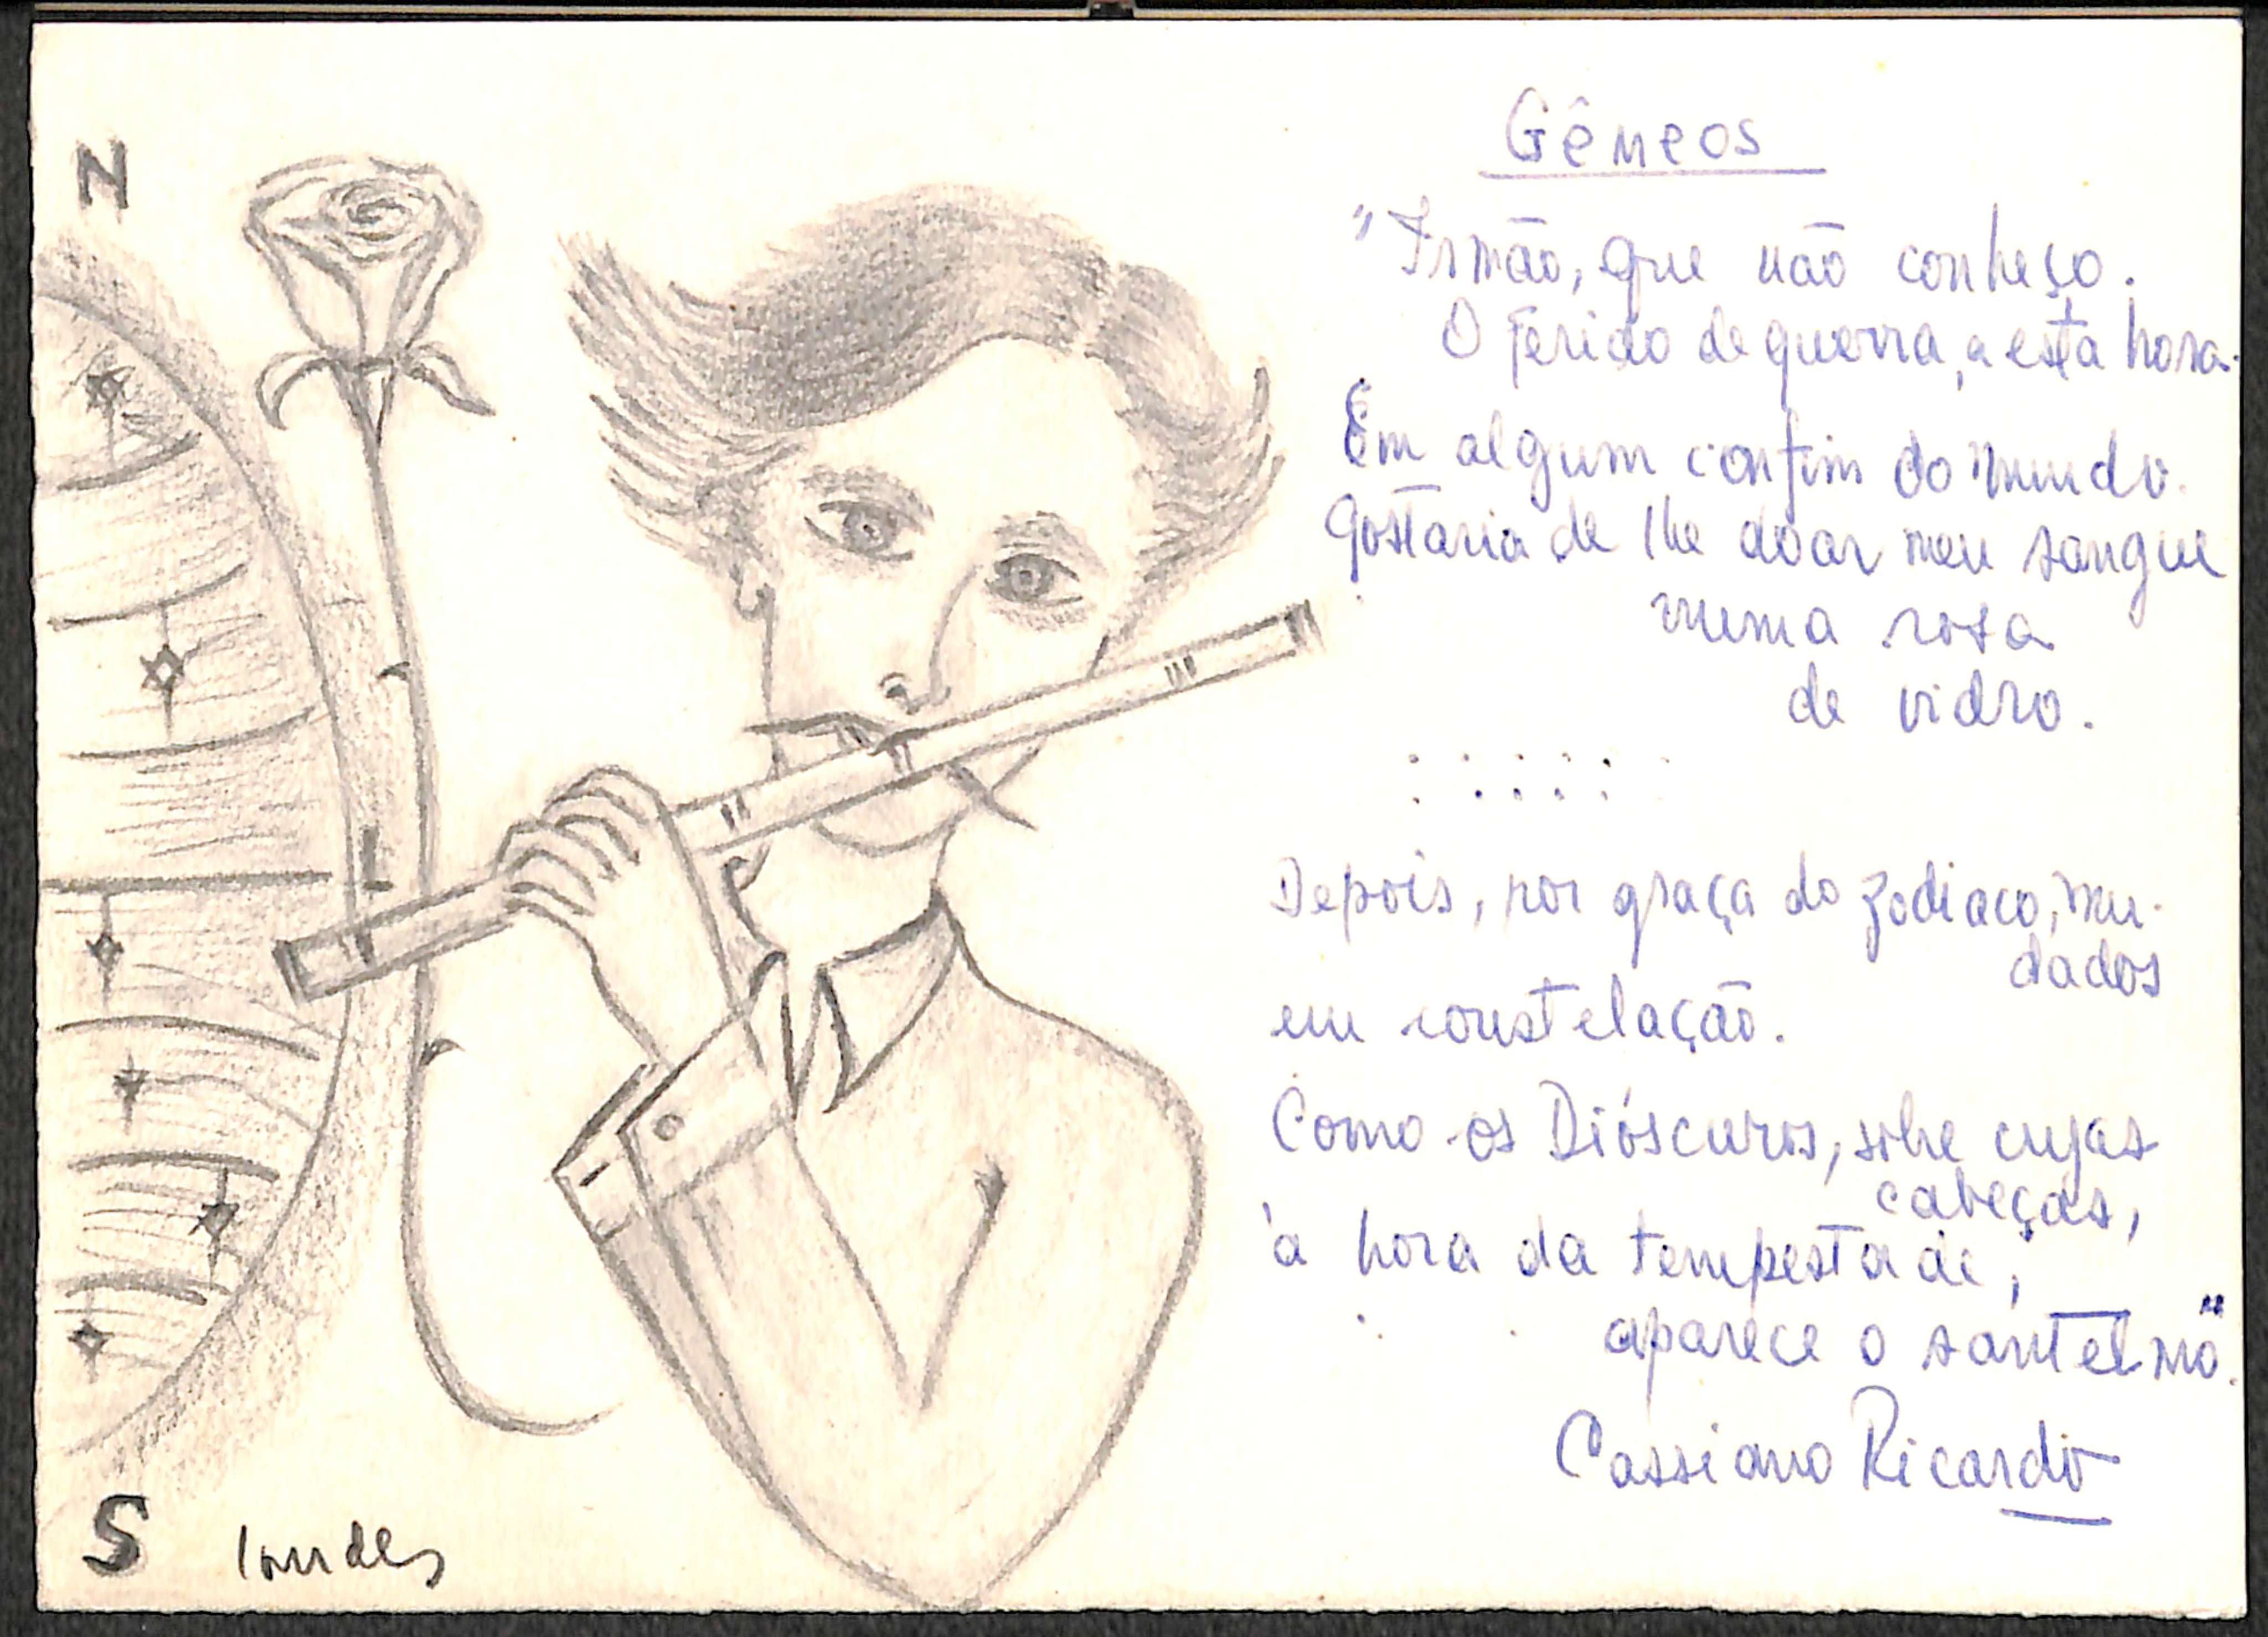 N
S
lourdes
Gêmeos
"Irmão, que não conheço.
O ferido de guerra, a esta hora.
Em algum confim do mundo.
Gostaria de lhe doar meu sangue
numa rosa
de vidro.
. . . . . .
. . . . .
Depois, por graça do zodiaco, mu-
dados
em constelação.
Como os Dióscuros, sobre cujas
cabeças,
à hora da tempestade,
aparece o santelmo".
Cassiano Ricardo